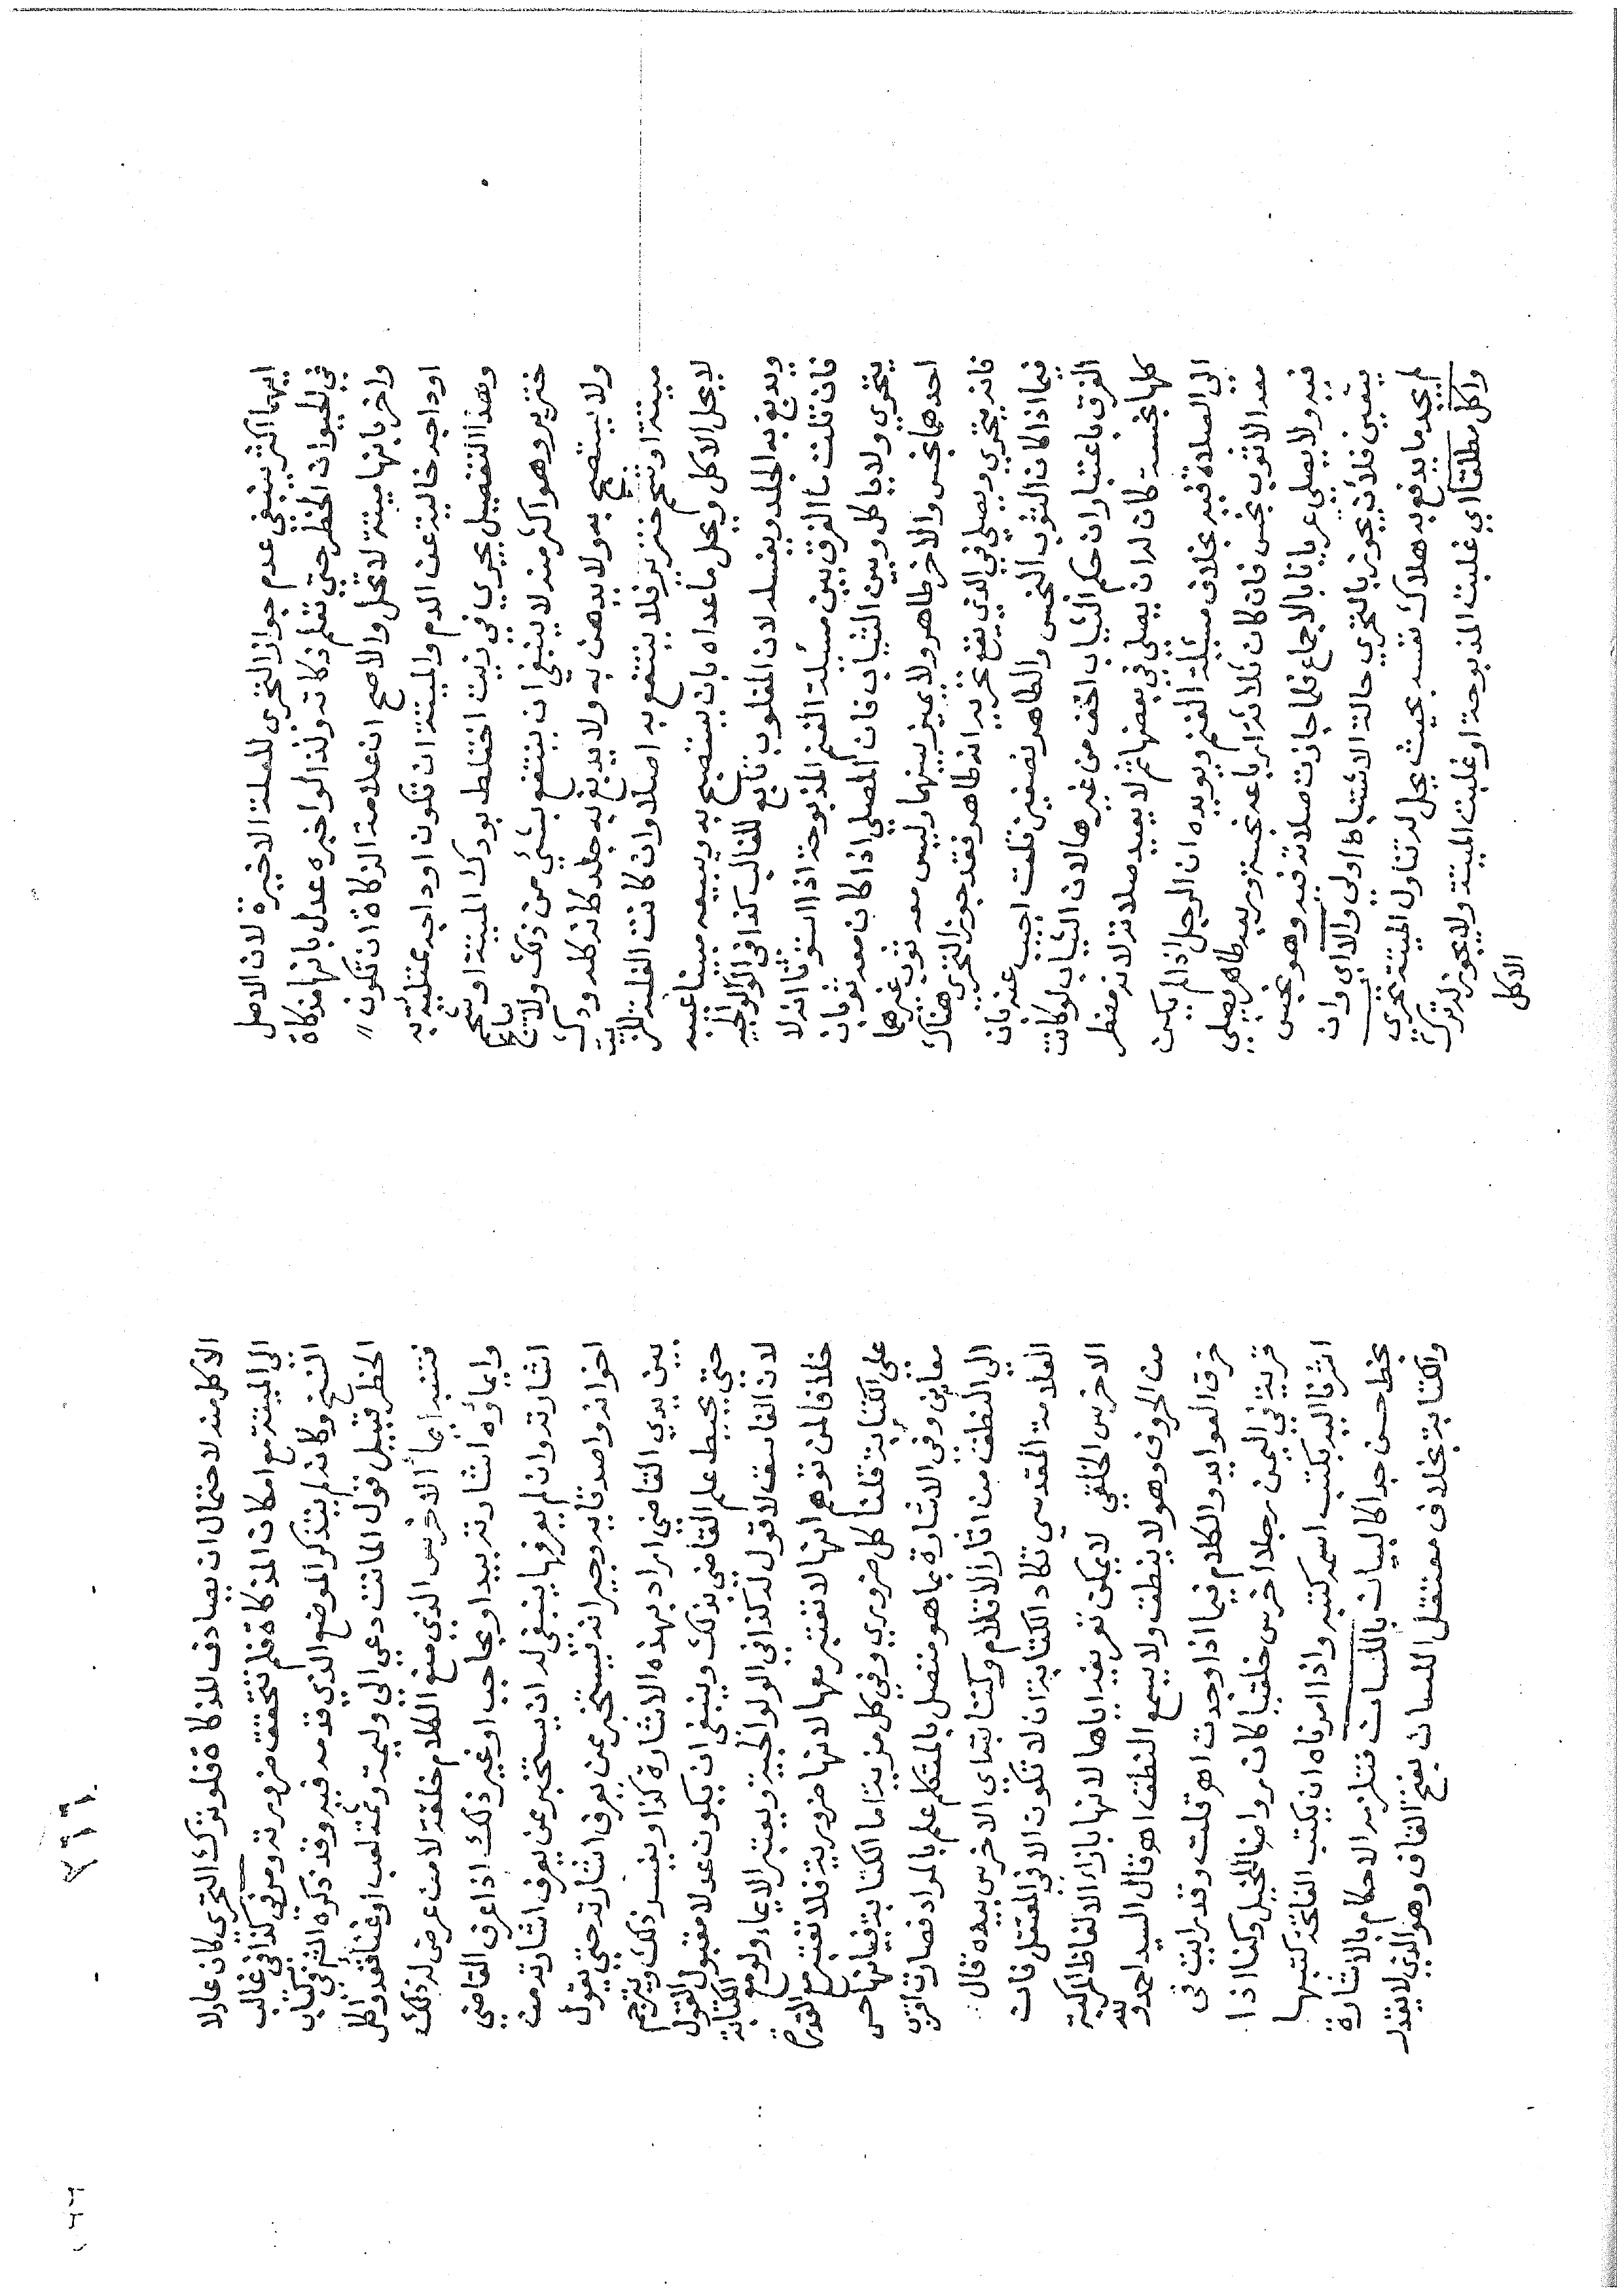 ايهما اكثر ينبغي عدم جواز التحري للمسئلة الاخيرة لان الاصل
في الحيوان الحظر حتي تعلم ذكاته ولذا لو اخبره عدل بانها مذكاة
واخر بانها ميتة لا تحل والاصح ان علامة الذكاة ان تكون
اوداجه خالية عن الدم والميتة ان تكون اوداجه ممتلية به
وهذا التفصيل يجري في زيت اختلط بودك الميتة او شحم
خنزير وهو اكثر منه لا ينبغي ان ينتفع بشئ من ذلك ولا يباع
ولا يستصبح به ولا يدهن به ولا يدبغ به جلد كانه كله ودك
ميتة او شحم خنزير فلا ينتفع به اصلا وان كانت الغلبة للزيت
لا يحل الاكل ويحل ما عداه بان يستصبح به ويبيعه مبينا عيبه
ويدبغ به الجلد ويغسله لان المغلوب تابع للغالب كذا في الولوالجية
فان قلت ما الفرق بين مسئلة الغنم المذبوحة اذا استوتا انه لا
يتحري ولا ياكل وبين الثياب فان المصلي اذا كان معه ثوبان
احدهما نجس والاخر طاهر ولا يميز بينهما وليس معه ثوب غيرهما
فانه يتحري ويصلي في الذي يقع تحريه انه طاهر فقد جوز التحري هناك
فيما اذا كان الثوب النجس والطاهر نصفين قلت اجيب عنه بان
الفرق باعتبار ان حكم الثياب اخف من غيرها لان الثياب لو كانت
كلها نجسة كان له ان يصلي في بعضها ثم لا يعيد صلاته لانه مضطر
الي الصلاة فيه بخلاف مسئلة الغنم ويويده ان الرجل اذا لم يكن
معه الا ثوب نجس فان كان ثلاثة ارباعه نجسة وربعه طاهر يصلي
فيه ولا يصلي عريانا بالاجماع فلما جازت صلاته فيه وهو نجس
بيقين فلأن يجوز بالتحري حالة الاشتباه اولي والا اي وان
لم يجد ما يدفع به هلاك نفسه بحيث يحل له تناول الميتة تحري
واكل مطلقا اي غلبت المذبوحة او غلبت الميتة ولا يجوز له ترك
الاكل
الاكل منه لاحتمال ان يصادف المذكاة فلو ترك التحري كان عادلا
الي الميتة مع امكان المذكاة فلم تتحقق ضرورته وصرف كذا في غالب
النسخ وكانه لم يتذكر الموضع الذي قدمه فيه وقد ذكره الثم في كتاب
الحظر قبيل قول الماتن دعي الي وليمة وثمة لعب او غنا قعد واكل
فتنبه ايماء الاخرس الذي منع الكلام خلقة لا من عرض له ذلك
وايماؤه اشارته بيد او بحاجب او غير ذلك اذا عرف القاضي
اشارته وان لم يعرفها ينبغي له ان يستخبر عمن يعرف اشارته من
اخوانه واصدقايه وجيرانه فيستخبر عمن يعرف اشارته حتي يقول
بين يدي القاضي اراد بهذه الاشارة كذا ويفسر ذلك ويترجم
حتي يحيط علم القاضي بذلك وينبغي ان يكون عدلا مقبول القول
لان الفاسق لا قول له كذا في الولوالجية ويعتبر الايماء ولو مع الكتابة
خلافا لمن توهم انها لا تعتبر معها لانها ضرورية فلا تعتبر مع القدرة
علي الكتابة قلنا كل ضروري وفي كل مزية اما الكتابة فيما انها حي
معاني وفي الاشارة بما هو متصل بالمتكلم علم بالمراد فصارت اقرب
الي النطق من اثار الاقلام وكتابته اي الاخرس بيده قال
العلامة المقدسي تكاد الكتابة ان لا تكون الا في المعتقل فان
الاخرس الخلقي لا يمكن تعريفه اياها لانها بازاء الالفاظ المركبة
من الحروف وهو لا ينطق ولا يسمع النطق اهـ قال السيد احمد وفيه
خرق العوايد والكلام فيما اذا وجدت اهـ قلت وقد رايت في
قرية في اليمن رجلا اخرس خلقيا كان رواضا للخيل وكنا اذا
اشرنا اليه يكتب اسمه كتبه واذا امرناه ان يكتب الفاتحة كتبها
بخط حسن جدا كالبيان باللسان فتلزمه الاحكام بالاشارة
والكتابة بخلاف معتقل اللسان بفتح القاف وهو الذي لا يقدر